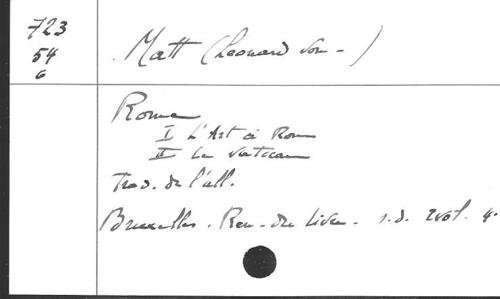 723
54
6
Matt (Leonard von -)
Rome
I L'Art à Rome
II Le Vatican
Trad. de l'all.
Bruxelles. Ren. du Livre. s.d. 2 vol. 4°